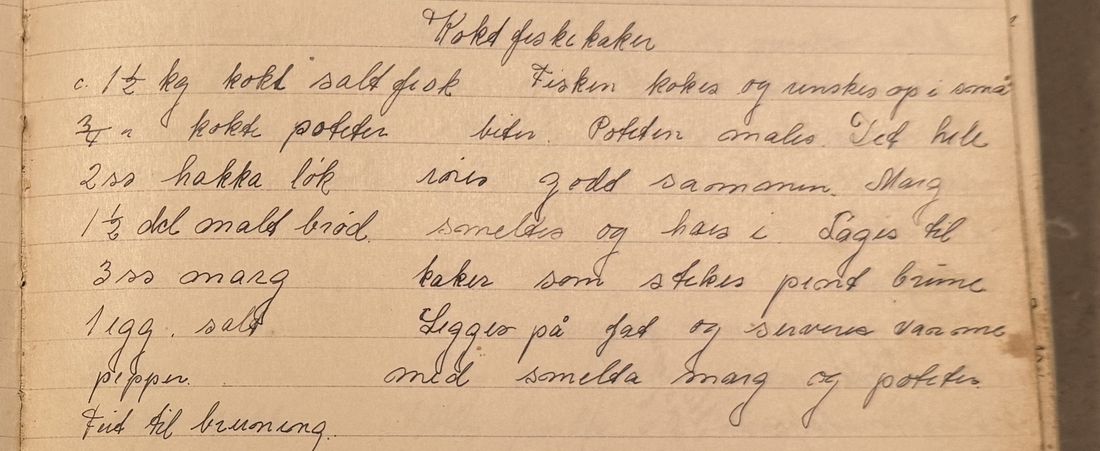 Kokt fiskekaker
c. 1½ kg kokt saltfisk Fisken kokes og renskes op i små
¾ " kokte poteter biter. Poteten males. Det hele
2 ss hakka løk røres godt sammen. Marg
1½ del malt brød. smeltes og haes i. Lages til
3 ss marg kaker som stekes pent brune
1 egg. salt Legges på fat og serveres varme
pepper. med smelta marg og poteter.
Fett til bruning.